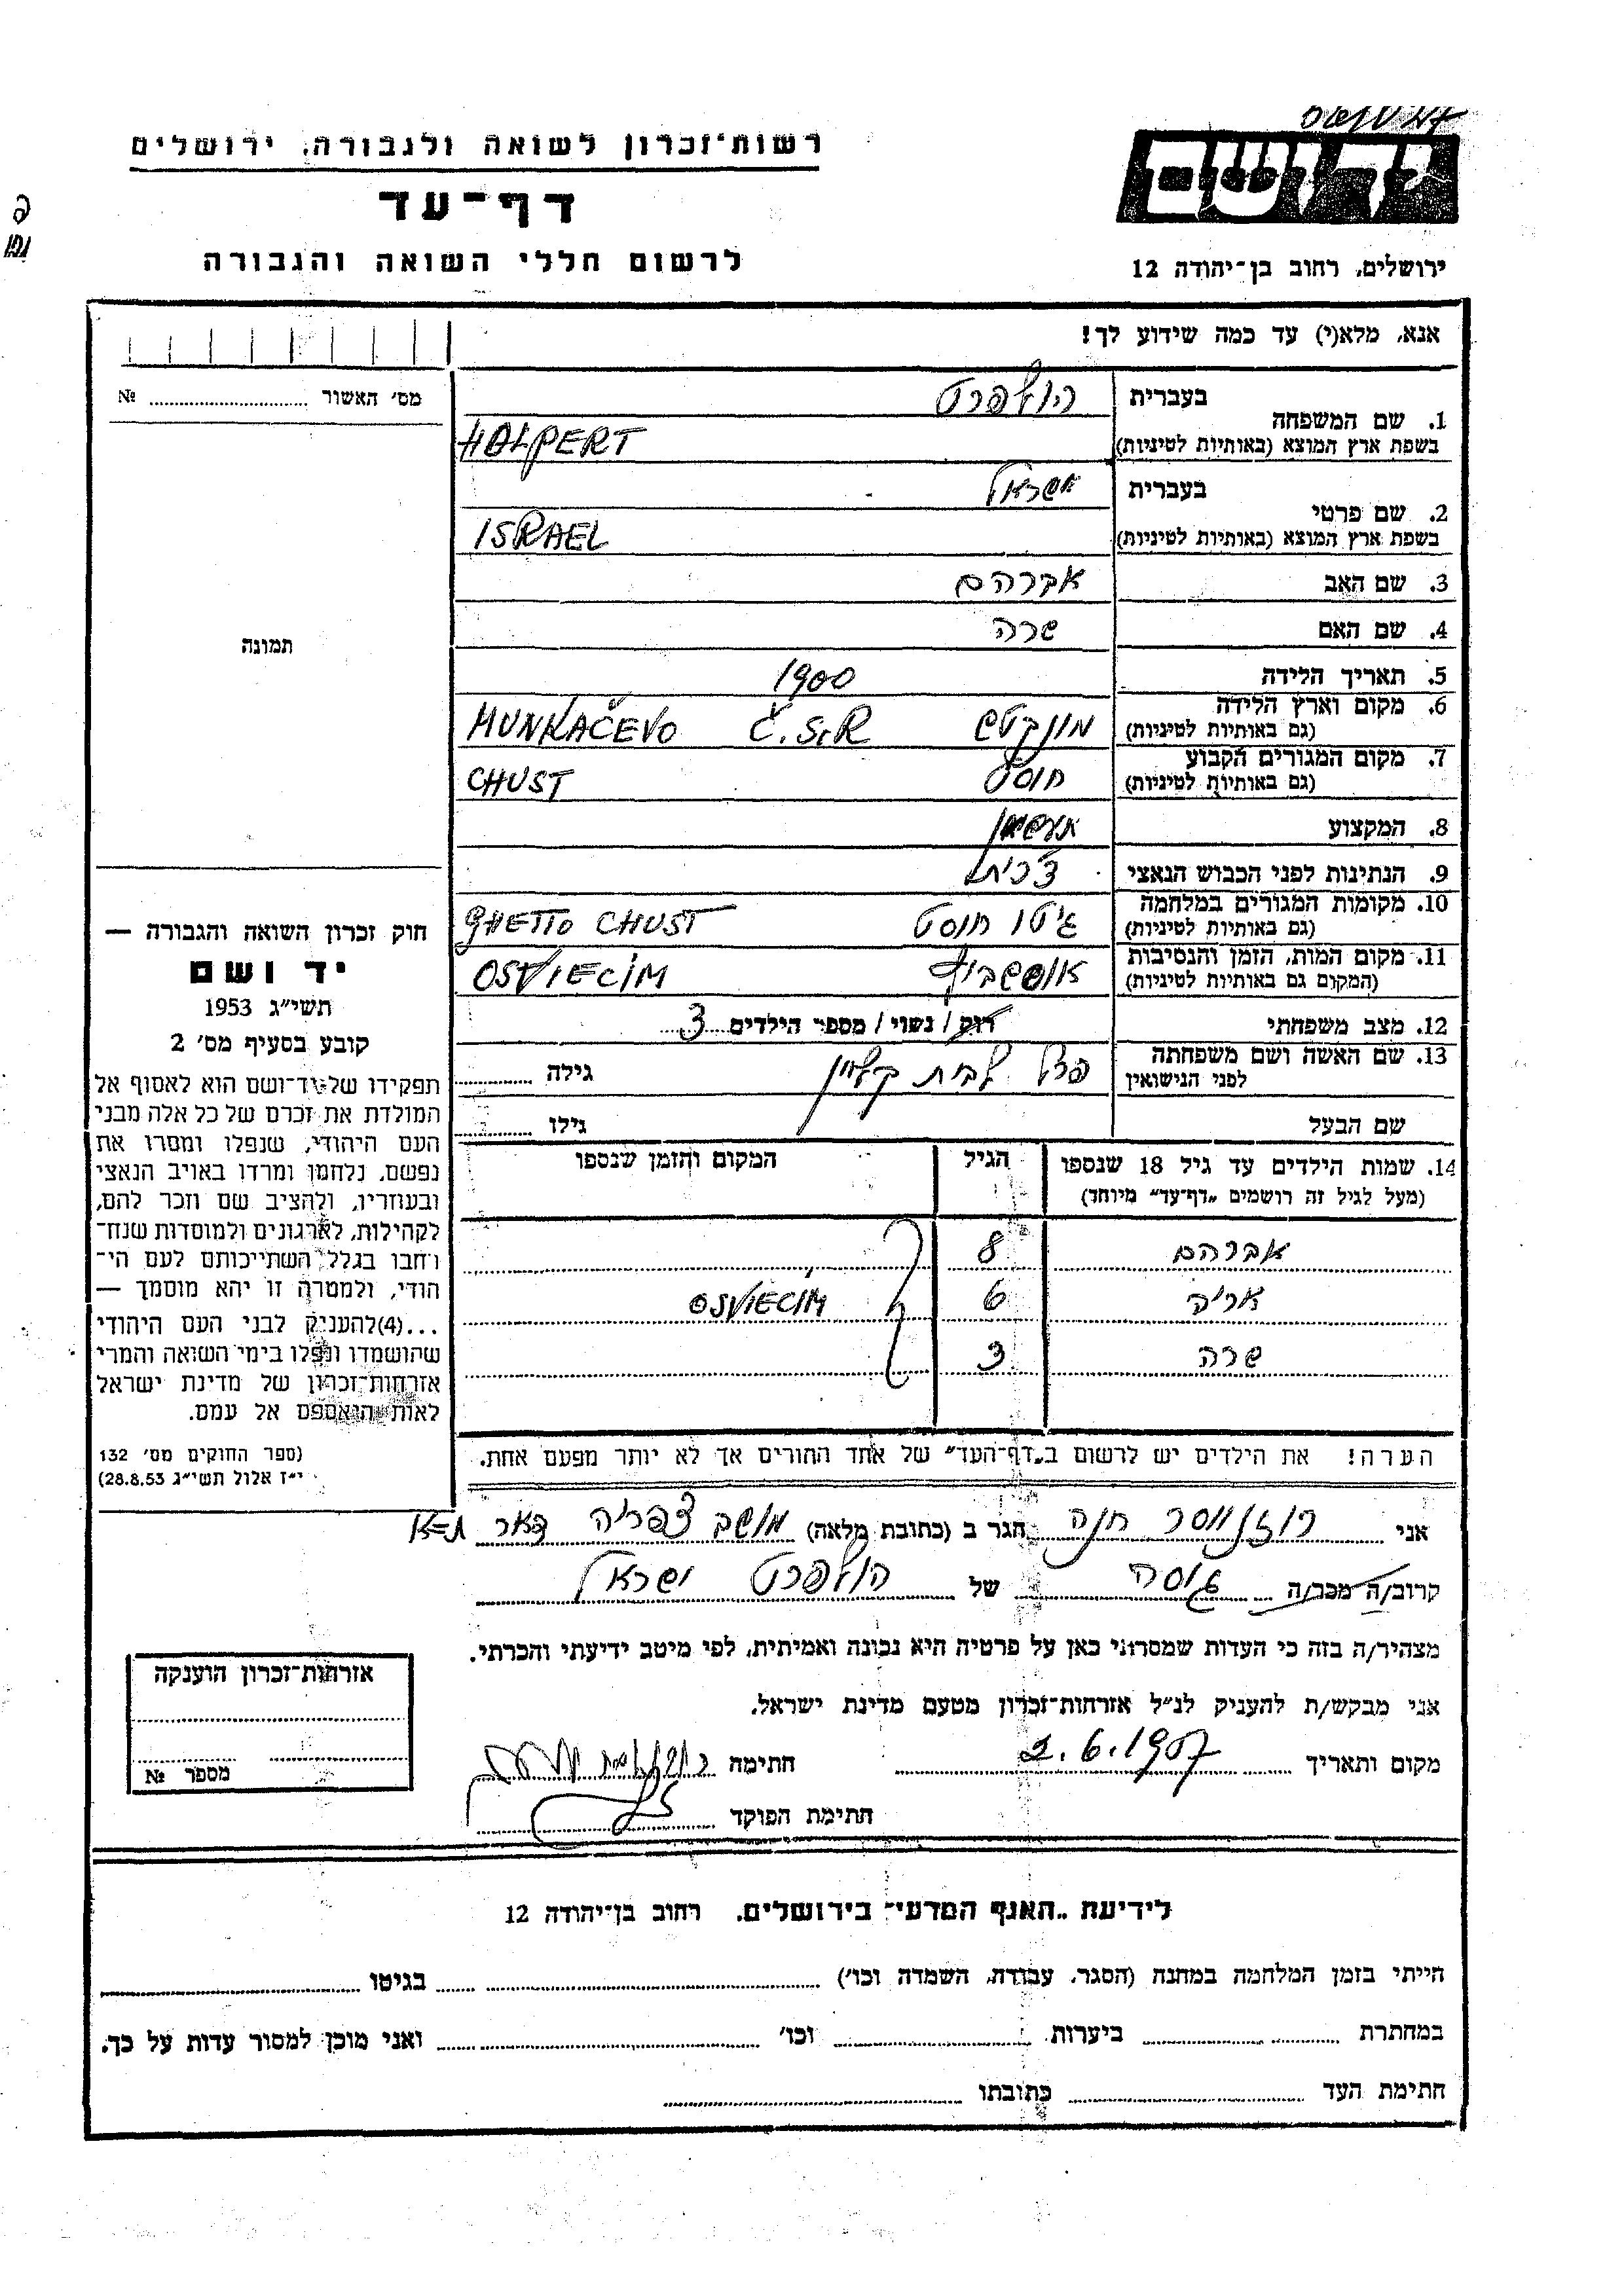 רשות־זכרון לשואה ולגבורה, ירושלים
דף־עד
לרשום חללי השואה והגבורה
יד ושם
ירושלים, רחוב בן־יהודה 12
אנא, מלא(י) עד כמה שידוע לך!
מס׳ האשור № 
1. שם המשפחה בעברית הולפרט
בשפת ארץ המוצא (באותיות לטיניות) HOLPERT
2. שם פרטי בעברית ישראל
בשפת ארץ המוצא (באותיות לטיניות) ISRAEL
3. שם האב אברהם
4. שם האם שרה
5. תאריך הלידה 1900
6. מקום וארץ הלידה (גם באותיות לטיניות) מונקטש MUNKAČEVO Č.S.R
7. מקום המגורים הקבוע (גם באותיות לטיניות) חוסט CHUST
8. המקצוע
9. הנתינות לפני הכבוש הנאצי צ׳כית
10. מקומות המגורים במלחמה (גם באותיות לטיניות) גיטו חוסט GHETTO CHUST
11. מקום המות, הזמן והנסיבות (המקום גם באותיות לטיניות) אושביץ OSVIECIM
12. מצב משפחתי רווק / נשוי / מספר הילדים 3
13. שם האשה ושם משפחתה לפני הנישואין פרל לבית קליין גילה
שם הבעל גילו
14. שמות הילדים עד גיל 18 שנספו הגיל המקום והזמן שנספו
(מעל לגיל זה רושמים „דף־עד״ מיוחד)
אברהם 8
אריה 6 OSVIECIM
שרה 3
הערה! את הילדים יש לרשום ב„דף־העד״ של אחד ההורים אך לא יותר מפעם אחת.
תמונה
חוק זכרון השואה והגבורה —
יד ושם
תשי״ג 1953
קובע בסעיף מס׳ 2
תפקידו של יד־ושם הוא לאסוף אל
המולדת את זכרם של כל אלה מבני
העם היהודי, שנפלו ומסרו את
נפשם, נלחמו ומרדו באויב הנאצי
ובעוזריו, ולהציב שם וזכר להם,
לקהילות, לארגונים ולמוסדות שנח־
רבו בגלל השתייכותם לעם הי־
הודי, ולמטרה זו יהא מוסמך —
...(4)להעניק לבני העם היהודי
שהושמדו ונפלו בימי השואה והמרי
אזרחות־זכרון של מדינת ישראל
לאות היאספם אל עמם.
(ספר החוקים מס׳ 132
י״ז אלול תשי״ג 28.8.53)
אני רוזנווסר חנה הגר ב (כתובת מלאה) מושב צפריה דאר נע
קרוב/ה מכר/ה גיסה של הולפרט ישראל
מצהיר/ה בזה כי העדות שמסרתי כאן על פרטיה היא נכונה ואמיתית, לפי מיטב ידיעתי והכרתי.
אני מבקש/ת להעניק לנ״ל אזרחות־זכרון מטעם מדינת ישראל.
מקום ותאריך 2.6.1957 חתימה
חתימת הפוקד
אזרחות־זכרון הוענקה
מספר №
לידיעת „האגף המדעי״ בירושלים, רחוב בן־יהודה 12
הייתי בזמן המלחמה במחנה (הסגר, עבודה, השמדה וכו׳) בגיטו
במחתרת ביערות וכו׳ ואני מוכן למסור עדות על כך.
חתימת העד כתובתו